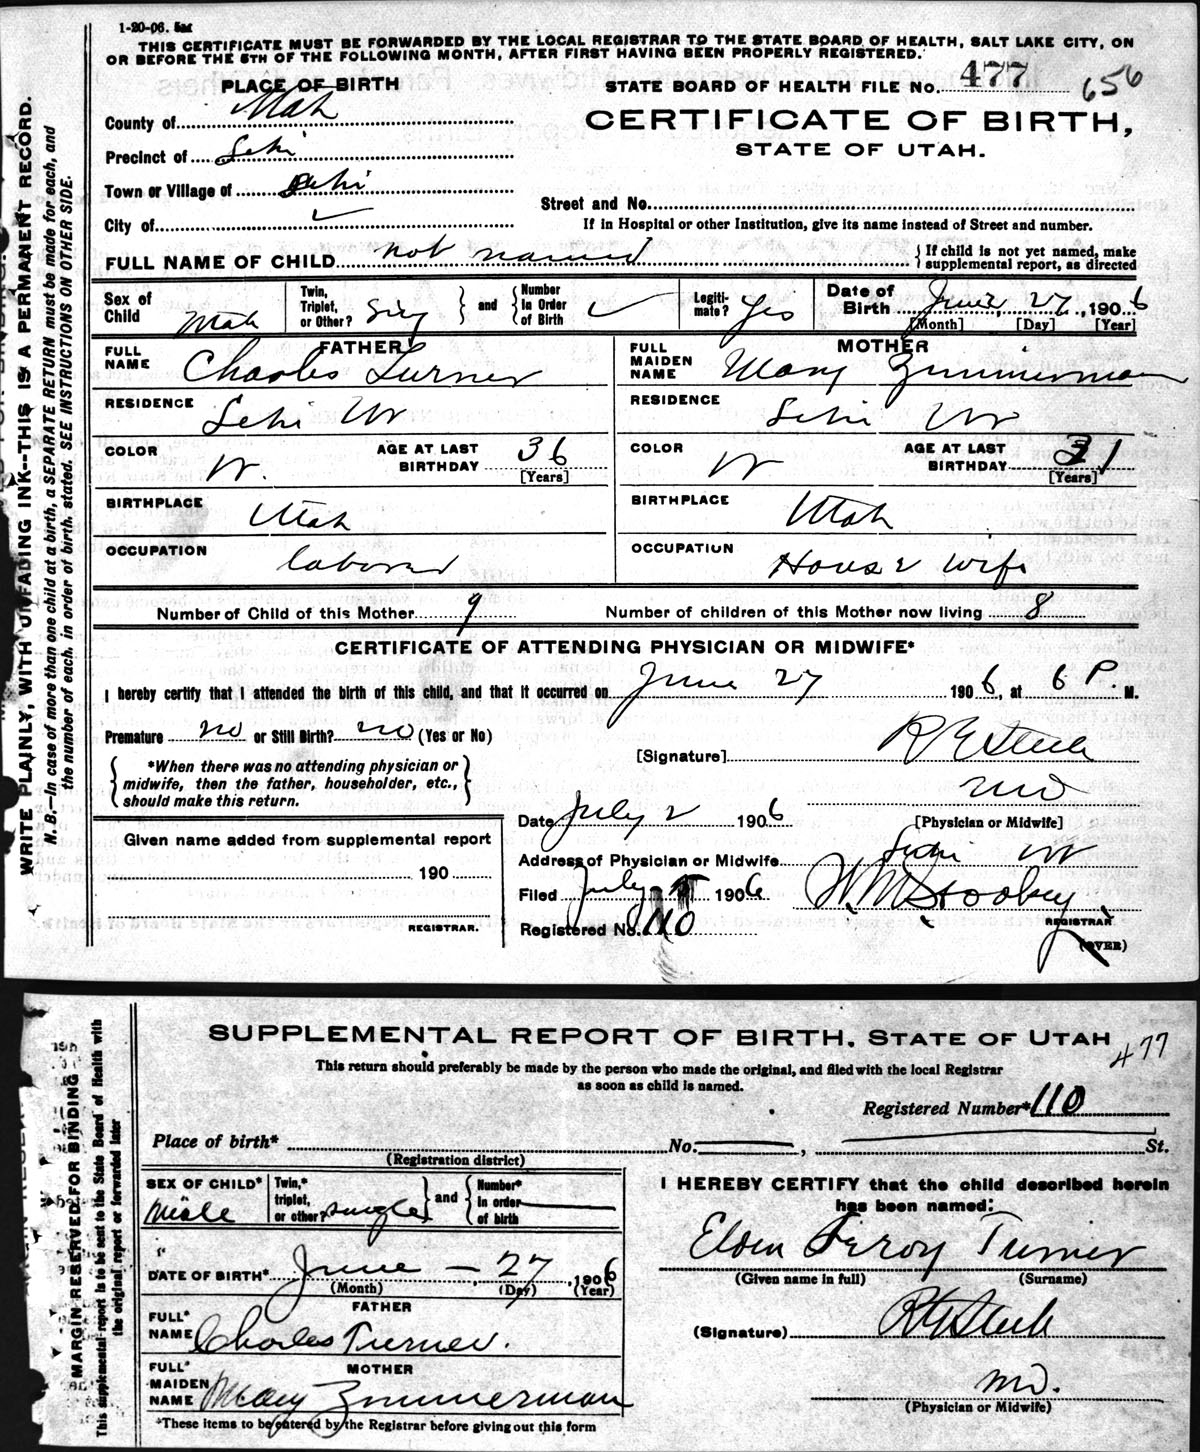 1-20-06. 5m
THIS CERTIFICATE MUST BE FORWARDED BY THE LOCAL REGISTRAR TO THE STATE BOARD OF HEALTH, SALT LAKE CITY, ON
OR BEFORE THE 5TH OF THE FOLLOWING MONTH, AFTER FIRST HAVING BEEN PROPERLY REGISTERED.
PLACE OF BIRTH
STATE BOARD OF HEALTH FILE NO. 477 656
County of Utah
CERTIFICATE OF BIRTH,
STATE OF UTAH.
Precinct of Lehi
Town or Village of Lehi
Street and No.
City of
If in Hospital or other Institution, give its name instead of Street and number.
FULL NAME OF CHILD not named { If child is not yet named, make supplemental report, as directed
Sex of Child Male Twin, Triplet, or Other? Sing } and { Number in Order of Birth Legitimate? Yes Date of Birth June, 27, 1906
[Month] [Day] [Year]
FATHER MOTHER
FULL NAME Charles Turner FULL MAIDEN NAME Mary Zimmerman
RESIDENCE Lehi Ut RESIDENCE Lehi Ut
COLOR W. AGE AT LAST BIRTHDAY 36 [Years] COLOR W AGE AT LAST BIRTHDAY 31 [Years]
BIRTHPLACE Utah BIRTHPLACE Utah
OCCUPATION laborer OCCUPATION House wife
Number of Child of this Mother 9 Number of children of this Mother now living 8
CERTIFICATE OF ATTENDING PHYSICIAN OR MIDWIFE*
I hereby certify that I attended the birth of this child, and that it occurred on June 27 1906, at 6 P. M.
Premature no or Still Birth? no (Yes or No)
[Signature] R E Steele
MD
[Physician or Midwife]
*When there was no attending physician or
midwife, then the father, householder, etc.,
should make this return.
Date July 2 1906
Given name added from supplemental report
190
REGISTRAR.
Address of Physician or Midwife Lehi Ut
Filed July 1906 W. M. Stookey
REGISTRAR
Registered No. 110
(OVER)
WRITE PLAINLY, WITH UNFADING INK--THIS IS A PERMANENT RECORD.
N. B.—In case of more than one child at a birth, a SEPARATE RETURN must be made for each, and
the number of each, in order of birth, stated. SEE INSTRUCTIONS ON OTHER SIDE.
SUPPLEMENTAL REPORT OF BIRTH, STATE OF UTAH
477
This return should preferably be made by the person who made the original, and filed with the local Registrar
as soon as child is named.
Registered Number* 110
Place of birth* No. , St.
(Registration district)
SEX OF CHILD* Male Twin,* triplet, or other? single } and { Number* in order of birth
DATE OF BIRTH* June - 27, 1906
(Month) (Day) (Year)
FATHER
FULL* NAME Charles Turner.
MOTHER
FULL* MAIDEN NAME Mary Zimmerman
*These items to be entered by the Registrar before giving out this form
I HEREBY CERTIFY that the child described herein
has been named:
Elden Leroy Turner
(Given name in full) (Surname)
(Signature) R E Steele
MD.
(Physician or Midwife)
MARGIN RESERVED FOR BINDING
This supplemental report is to be sent to the State Board of Health with
the original report or forwarded later